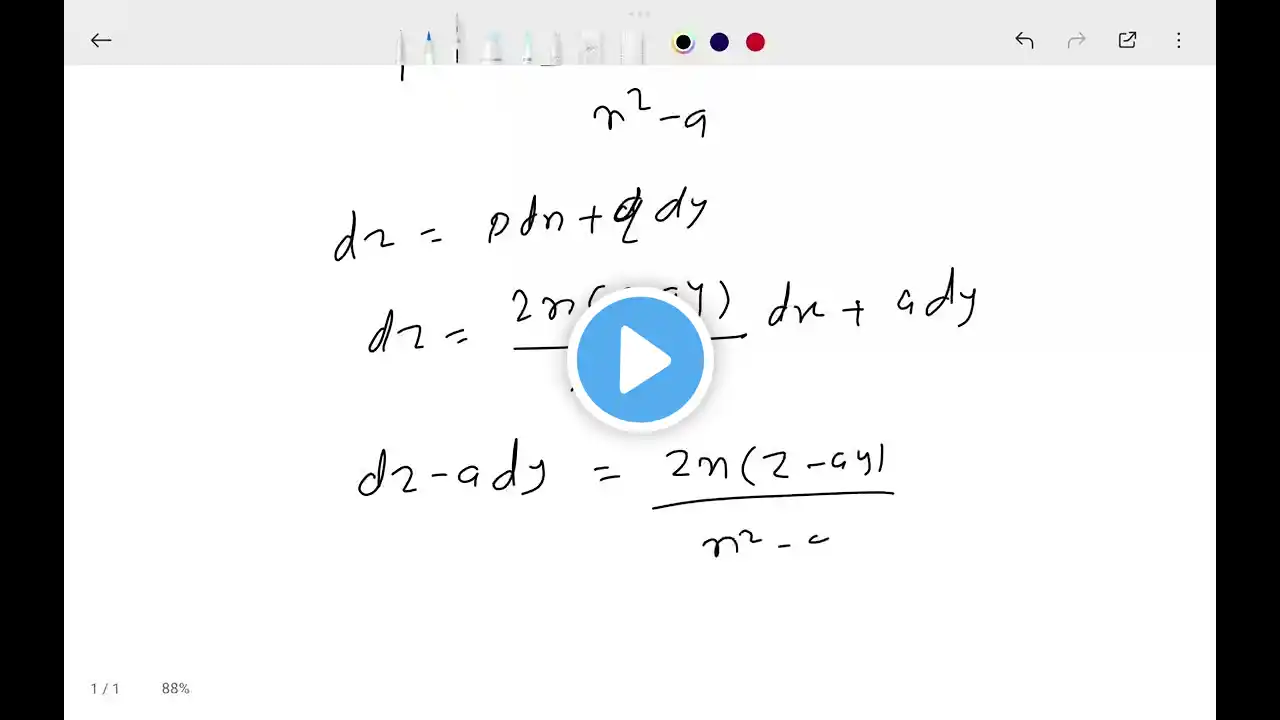 x² - a
dz = pdx + q dy
dz = 2x( ay) dx + a dy
dz - a dy = 2x(z - ay)
x² - a
1 / 1 88%